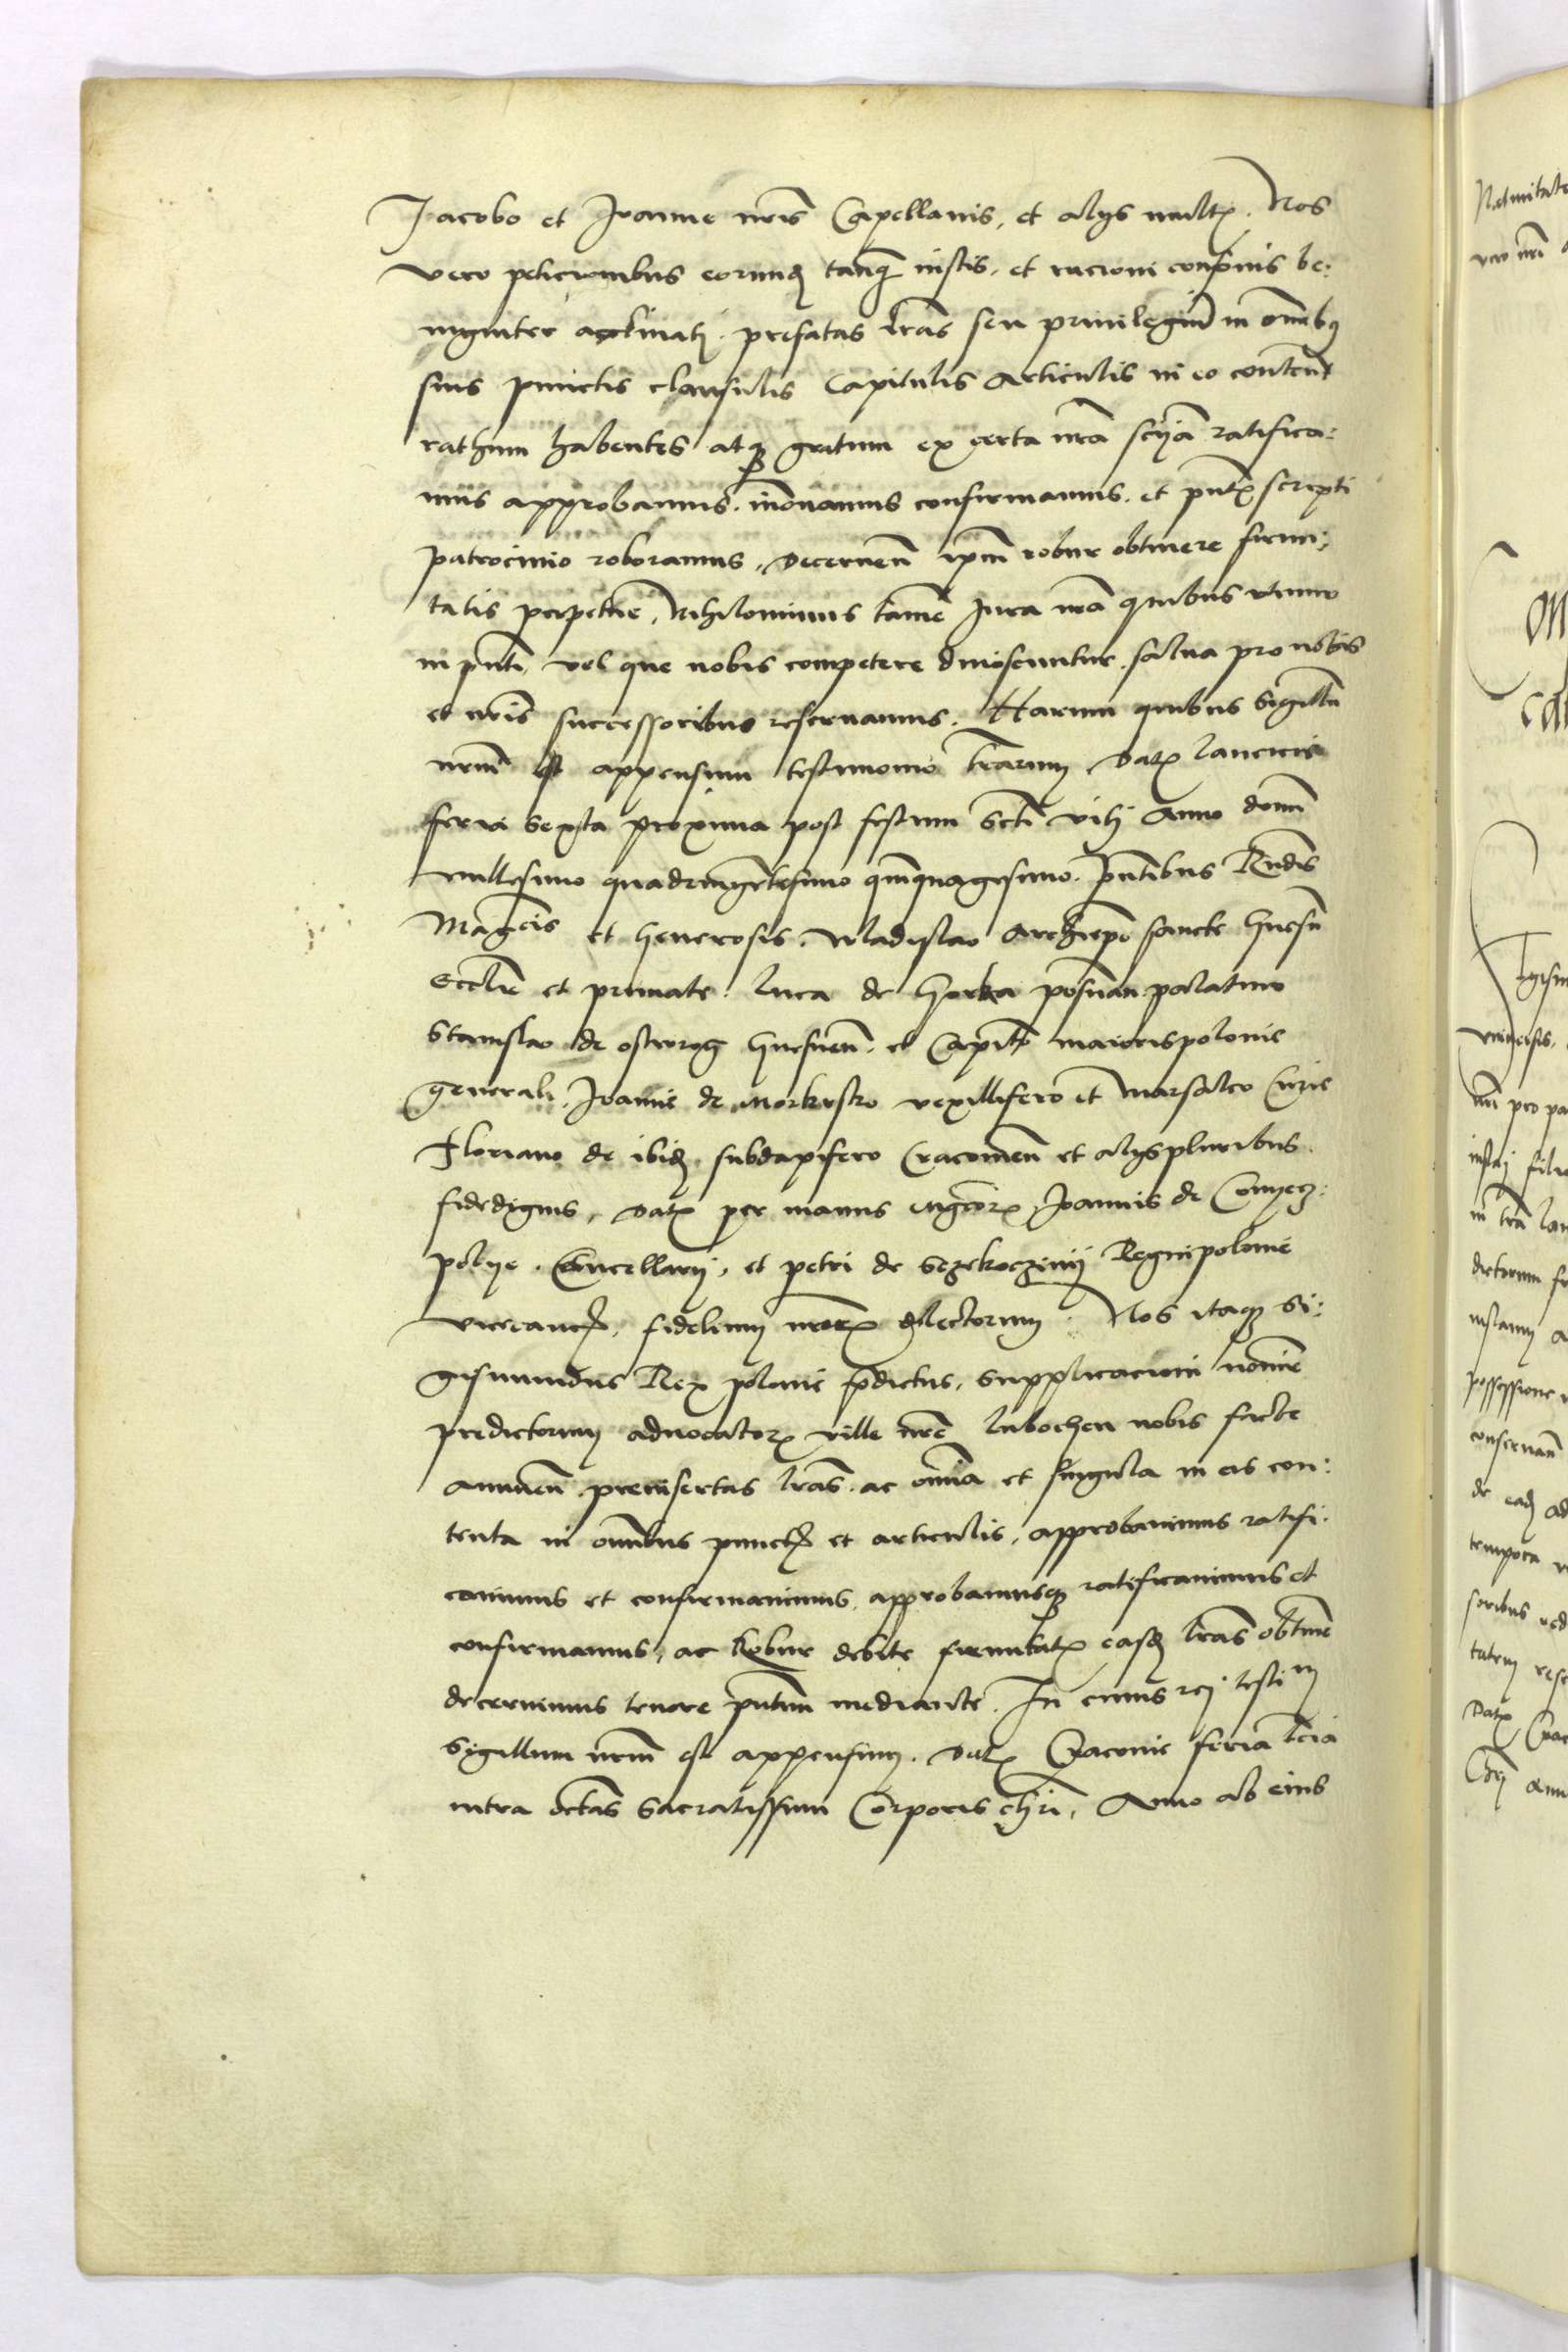 Jacobo et Joanne nr̄is Capellanis, et alys multꝭ. Nos
vero peticionibus eorundꝫ tanqꝫ iustis, et racioni consonis be:
nigniter acclinatj. prefatas lr̄as seu priuilegiū in om̄ibꝰ
suis punctis clausulis Capitulis Articulis in eo conten̄t
rathum habentes atqꝫ gratum ex certa nr̄a sciā ratifica:
mus approbamus. īnouamus confirmamus. et pn̄tꝭ scripti
patrocinio roboramus, decernen̄ ip̄m robur obtinere firmi:
tatis perpetue, Nihilominus tamē Jura nr̄a quibus vtimur
in pn̄ti, vel que nobis competere dinoscuntur, salua pro nobis
et nr̄is successoribus reseruamus. Harum quibus Sigillū
nr̄m est appensum testimonio lr̄arum, Datꝭ lancicie
feria Sexta proxima post festum Sc̄ti viti Anno domī
millesimo quadringētesimo qūquagesimo. Pn̄tibus Rn̄dis
Magcis et Generosis. Wladislao Archiep̄o sancte Gnesn̄
Eccl̄ie et primate. luca de Gorka posnan̄ palatino
Stanislao de ostrorog Gnesnen̄. et Capit̄o maiorispolonie
generali. Joanne de morkrsko vexillifero et marsalco Curie
Floriano de ibidꝫ subdapifero Cracouien̄ et alys pluribus
fidedignis, Datꝭ per manus mgcorꝫ Joannis de Conyecz:
polye. Cancellarij, et petri de Sczekoczinij Regni polonie
vicecancꝭ, fidelium nr̄orꝫ dilectorum. Nos itaqꝫ Si:
gismundus Rex polonie p̄dictus, supplicacioni noīme
predictorum aduocatorꝫ ville nr̄e lubochen nobis facte
annuen̄ preinsertas lr̄as. ac om̄ia et singula in eis con:
tenta in om̄ibus punctꝭ et articulis, approbauimus ratifi:
cauimus et confirmauimus, approbamusqꝫ ratificamus et
confirmamus, ac Robur debite firmitatꝭ easdꝫ lr̄as obtinē
decernimus tenore pn̄tium mediante. In cuius rej testim
Sigillum nr̄m est appensum. Datꝭ Cracouie feria tcia
intra octauas Sacratissimi Corporis chr̄i, Anno ab eius